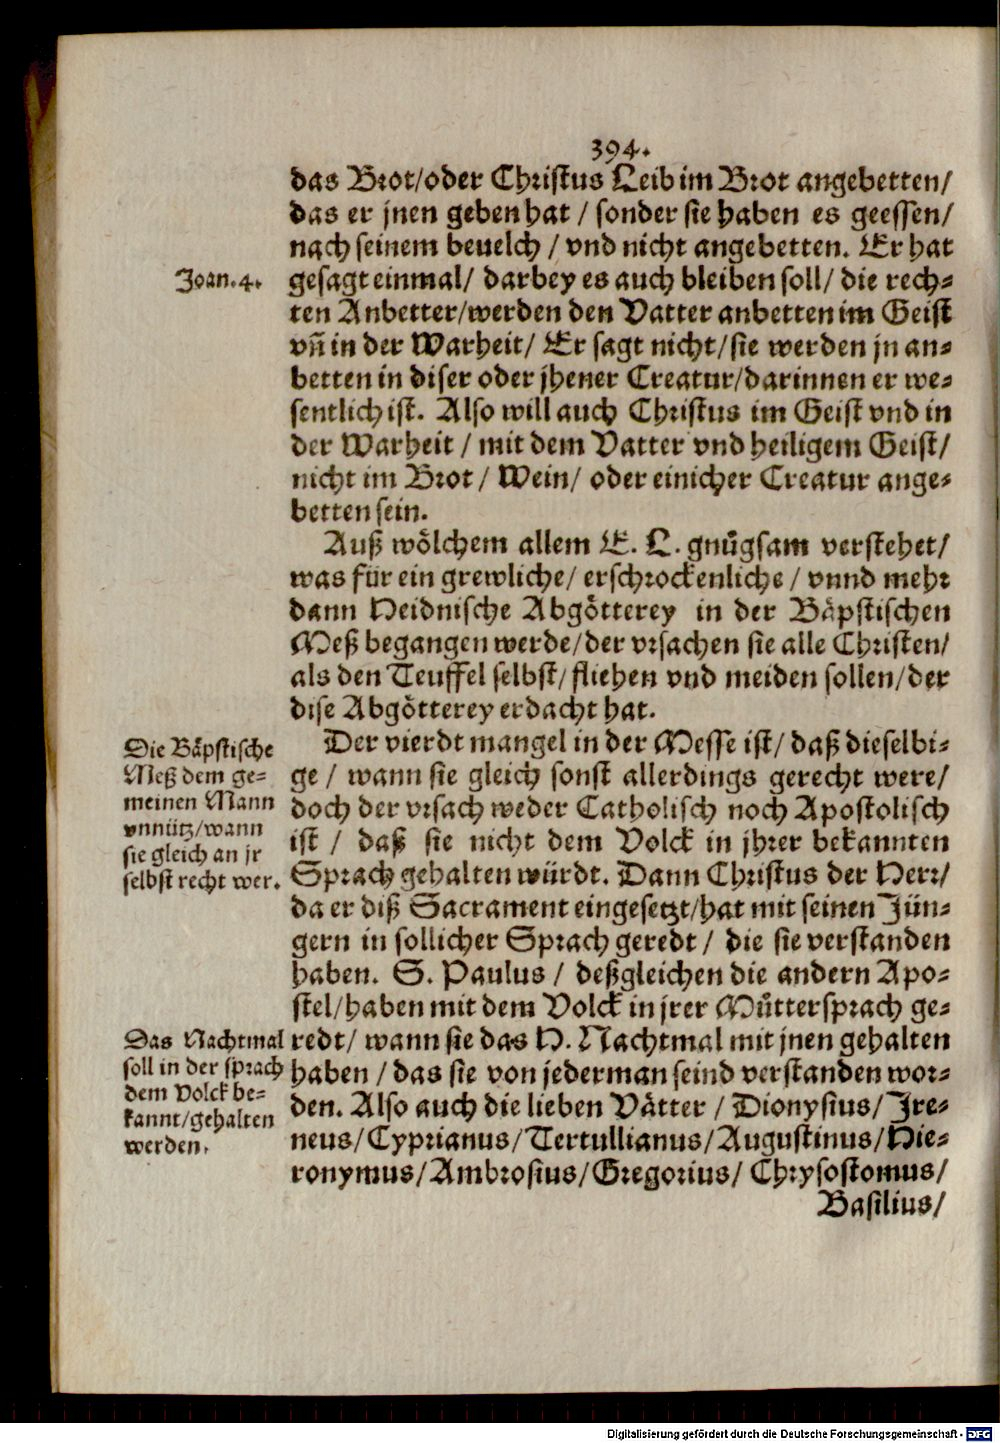 394.
das Brot/oder Christus Leib im Brot angebetten/
das er jnen geben hat / sonder sie haben es geessen/
nach seinem beuelch / vnd nicht angebetten. Er hat
Joan. 4.
gesagt einmal/ darbey es auch bleiben soll/ die rech-
ten Anbetter/werden den Vatter anbetten im Geist
vñ in der Warheit/ Er sagt nicht/sie werden jn an-
betten in diser oder jhener Creatur/darinnen er we-
sentlich ist. Also will auch Christus im Geist vnd in
der Warheit / mit dem Vatter vnd heiligem Geist/
nicht im Brot / Wein/ oder einicher Creatur ange-
betten sein.
Auß woͤlchem allem E. L. gnuͤgsam verstehet/
was für ein grewliche/ erschrockenliche / vnnd mehr
dann Heidnische Abgoͤtterey in der Baͤpstischen
Meß begangen werde/der vrsachen sie alle Christen/
als den Teuffel selbst/ fliehen vnd meiden sollen/der
dise Abgoͤtterey erdacht hat.
Die Baͤpstische
Meß dem ge-
meinen Mann
vnnütz/wann
sie gleich an jr
selbst recht wer.
Der vierdt mangel in der Messe ist/ daß dieselbi-
ge / wann sie gleich sonst allerdings gerecht were/
doch der vrsach weder Catholisch noch Apostolisch
ist / daß sie nicht dem Volck in jhrer bekannten
Sprach gehalten würdt. Dann Christus der Herr/
da er diß Sacrament eingesetzt/hat mit seinen Jün-
gern in sollicher Sprach geredt / die sie verstanden
haben. S. Paulus / deßgleichen die andern Apo-
stel/haben mit dem Volck in jrer Muͤttersprach ge-
Das Nachtmal
soll in der sprach
dem Volck be-
kannt/gehalten
werden.
redt/ wann sie das H. Nachtmal mit jnen gehalten
haben / das sie von jederman seind verstanden wor-
den. Also auch die lieben Vaͤtter / Dionysius/ Ire-
neus/Cyprianus/Tertullianus/Augustinus/Hie-
ronymus/Ambrosius/Gregorius/ Chrysostomus/
Basilius/
Digitalisierung gefördert durch die Deutsche Forschungsgemeinschaft - DFG